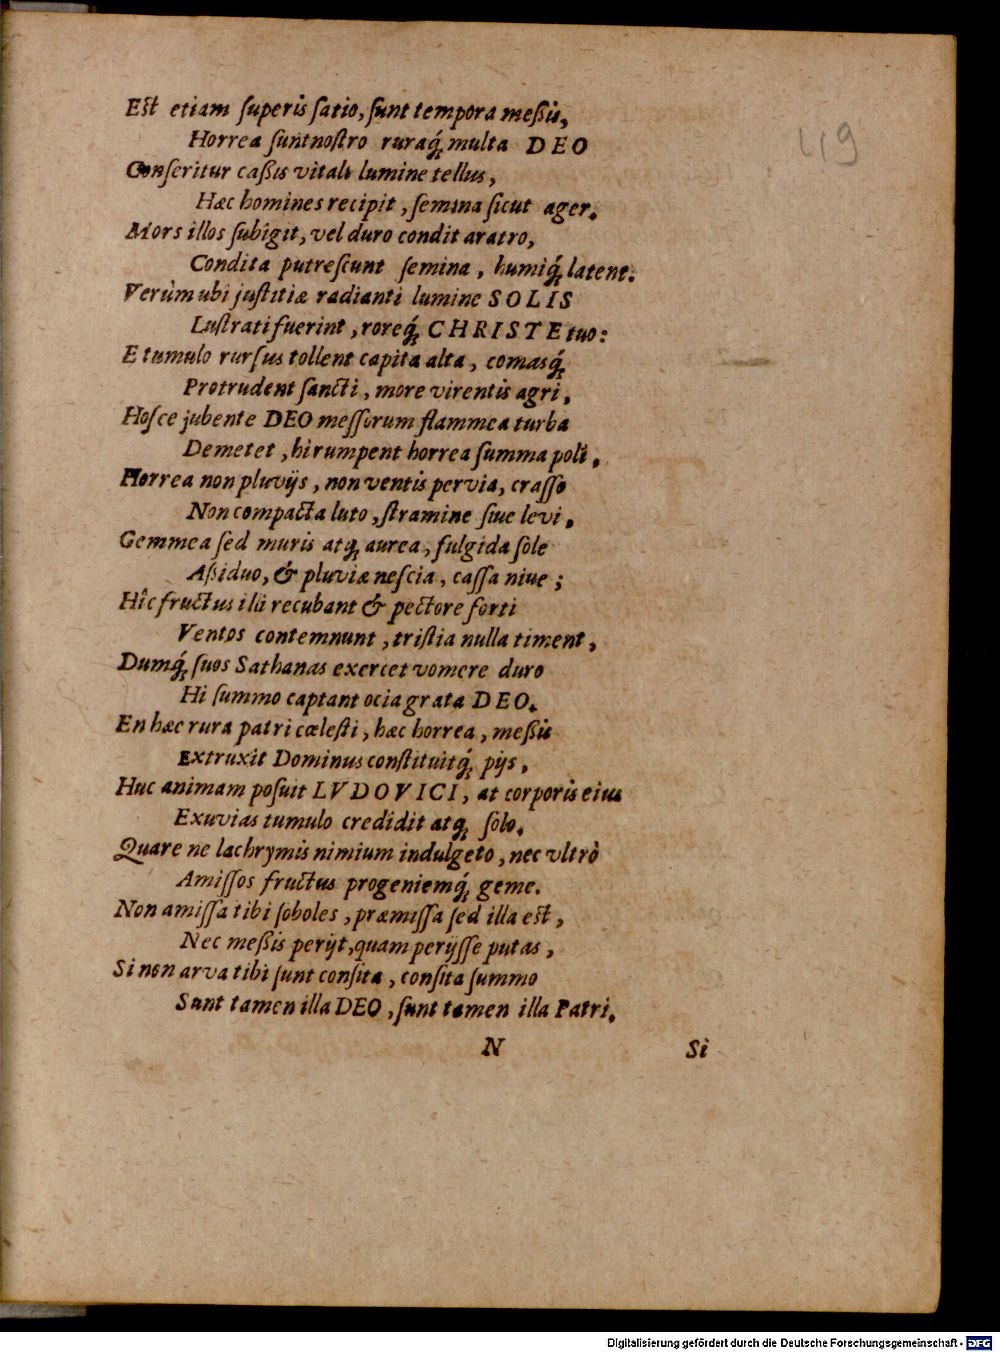 Eſt etiam ſuperis ſatio, ſunt tempora meßis,
Horrea ſunt noſtro ruraq́; multa DEO
Conſeritur caßis vitali lumine tellus,
Hæc homines recipit, ſemina ſicut ager.
Mors illos ſubigit, vel duro condit aratro,
Condita putreſcunt ſemina, humiq́; latent.
Verùm ubi juſtitiæ radianti lumine SOLIS
Luſtrati fuerint, roreq́; CHRISTE tuo:
E tumulo rurſus tollent capita alta, comasq́;
Protrudent ſancti, more virentis agri,
Hoſce jubente DEO meſſorum flammea turba
Demetet, hi rumpent horrea ſumma poli,
Horrea non pluvijs, non ventis pervia, craſſo
Non compacta luto, ſtramine ſiue levi,
Gemmea ſed muris atq; aurea, fulgida ſole
Aßiduo, & pluviæ neſcia, caſſa niue;
Hîc fructus illi recubant & pectore forti
Ventos contemnunt, triſtia nulla timent,
Dumq́; ſuos Sathanas exercet vomere duro
Hi ſummo captant ocia grata DEO.
En hæc rura patri cœleſti, hæc horrea, meßis
Extruxit Dominus conſtituitq́; pijs,
Huc animam poſuit LVDOVICI, at corporis eius
Exuvias tumulo credidit atq; ſolo.
Quare ne lachrymis nimium indulgeto, nec vltrò
Amiſſos fructus progeniemq́; geme.
Non amiſſa tibi ſoboles, præmiſſa ſed illa eſt,
Nec meßis perijt, quam perijſſe putas,
Si non arva tibi ſunt conſita, conſita ſummo
Sunt tamen illa DEO, ſunt tamen illa Patri.
N Si
119
Digitalisierung gefördert durch die Deutsche Forschungsgemeinschaft - DFG